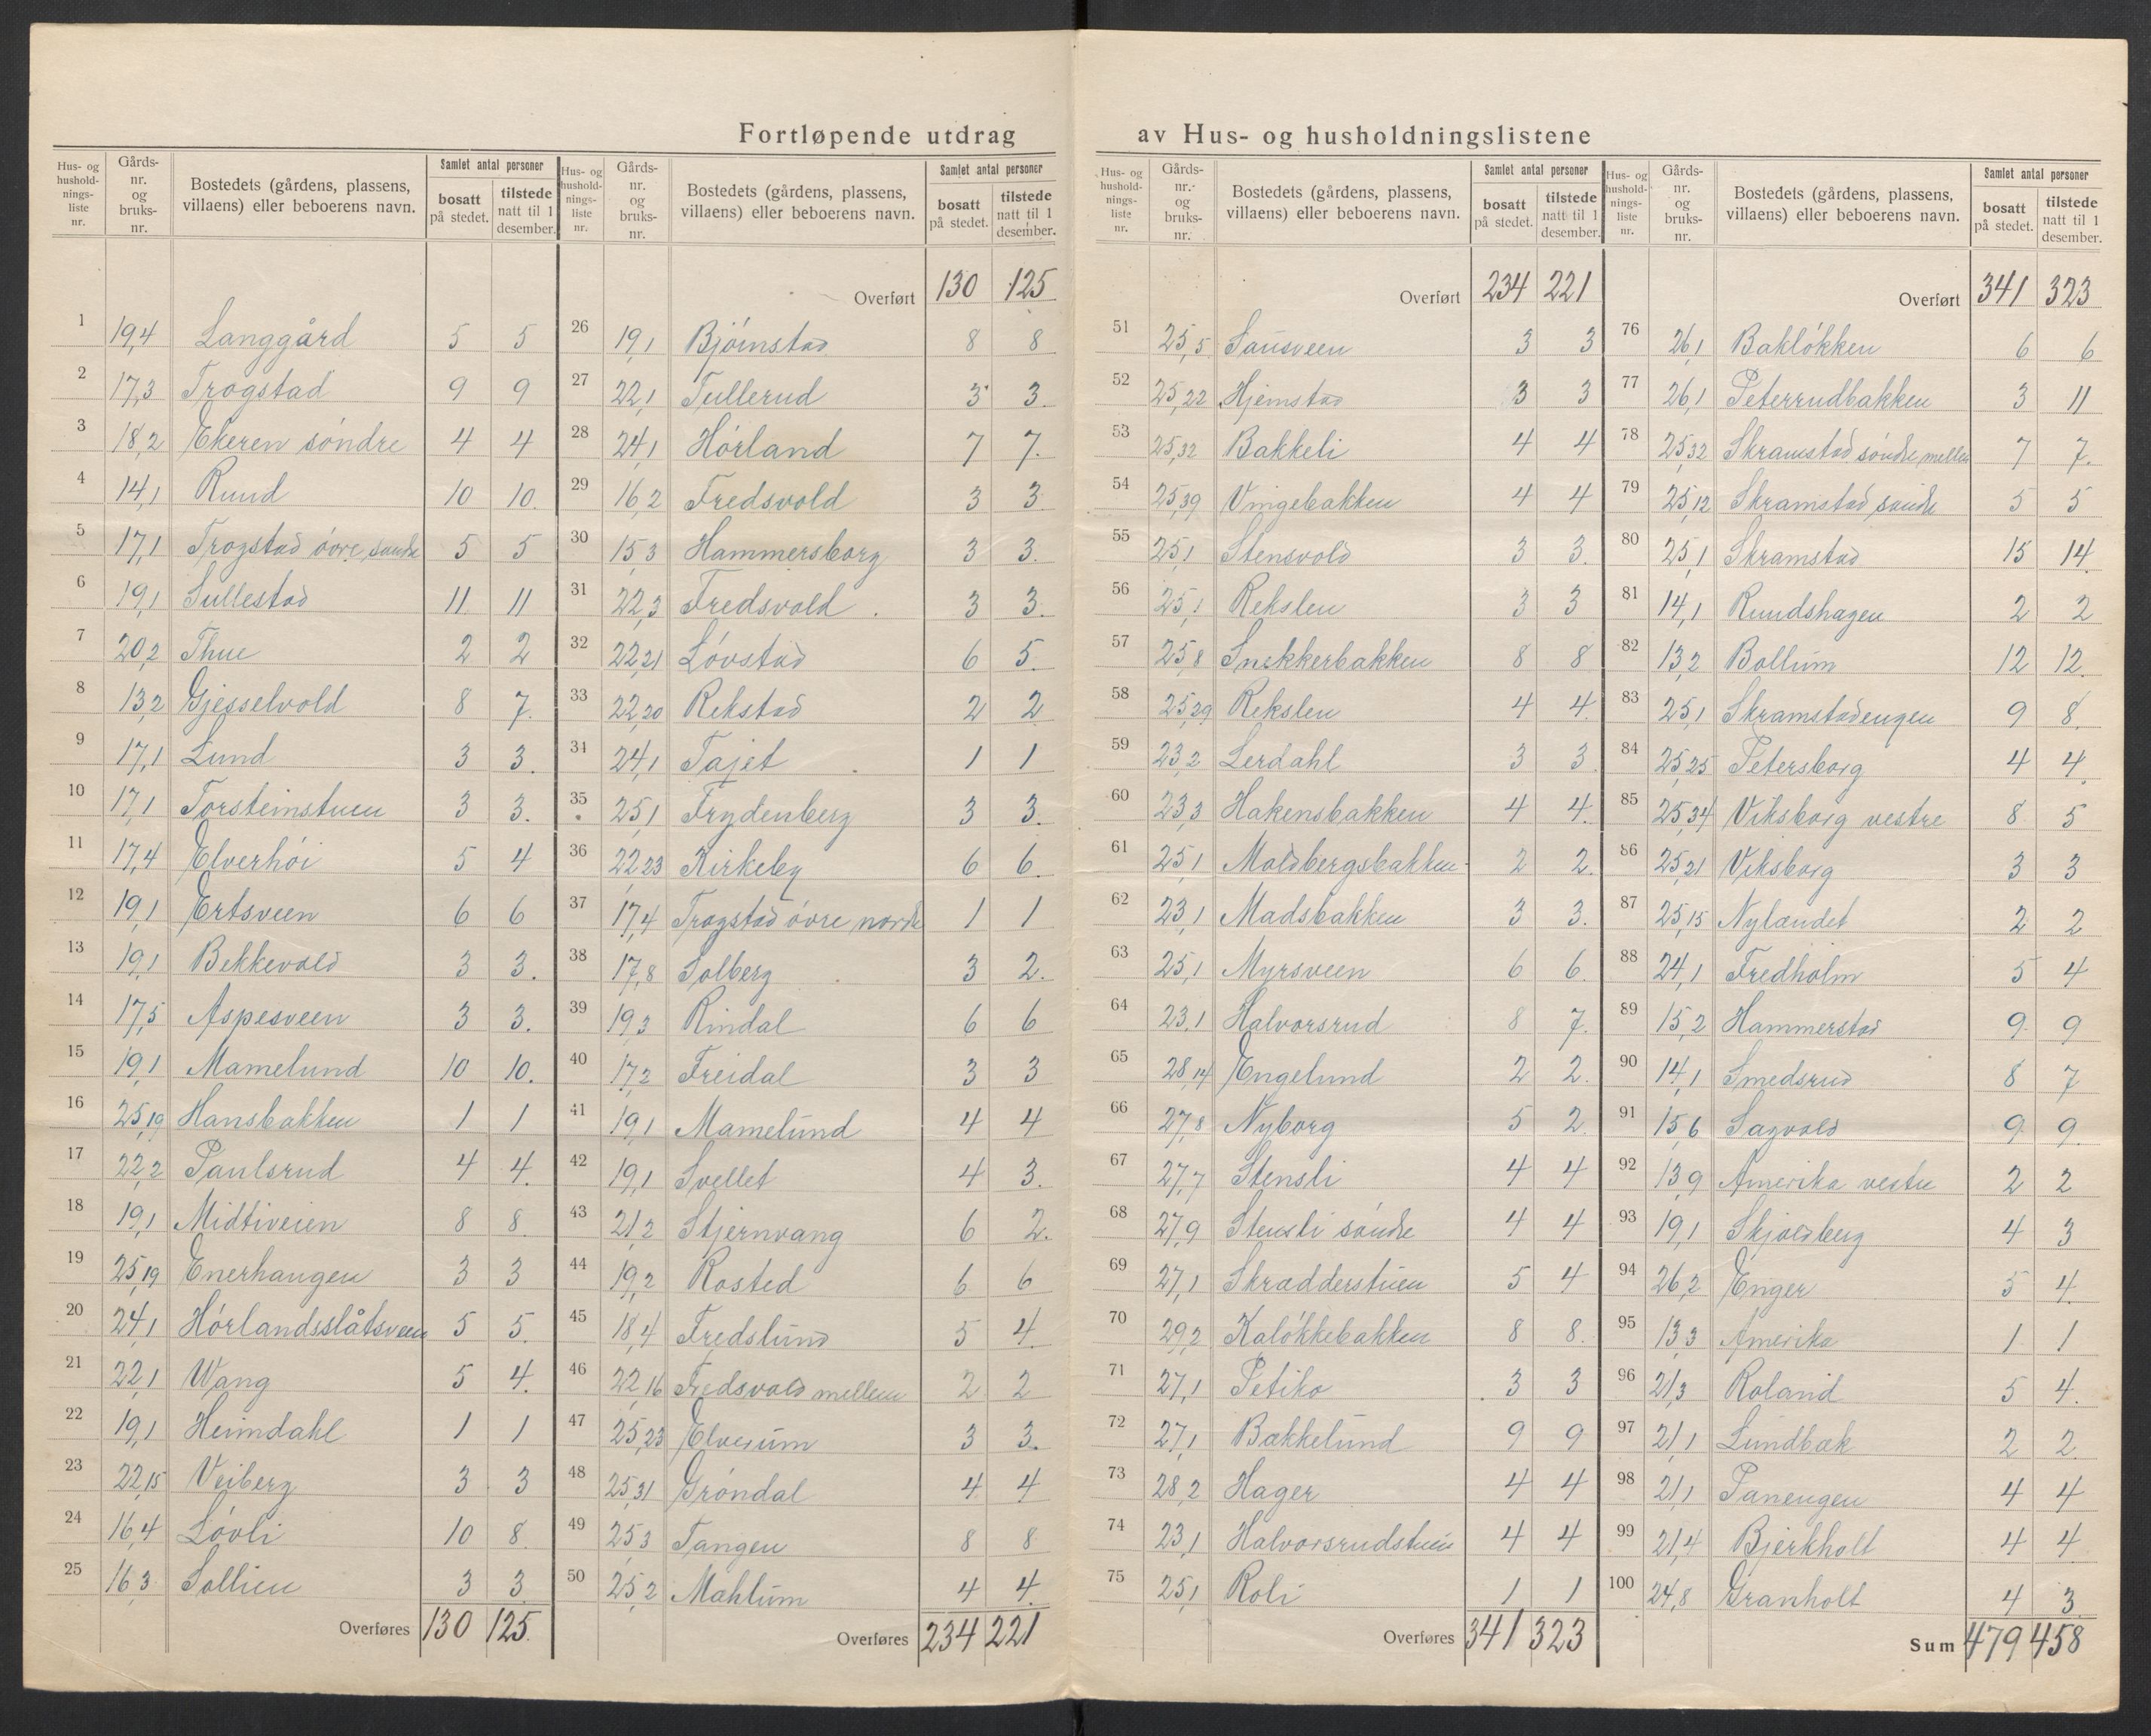 Fortløpende utdrag av Hus- og husholdningslistene
Hus- og hushold-nings-liste nr. Gårds-nr. og bruks-nr. Bostedets (gårdens, plassens, villaens) eller beboerens navn. Samlet antal personer bosatt på stedet. tilstede natt til 1 desember.
1 19,4 Langgård 5 5
2 17,3 Trogstad 9 9
3 18,2 Ekeren søndre 4 4
4 14,1 Ruud 10 10.
5 17,1 Trogstad øvre, søndre 5 5
6 19,1 Sullestad 11 11
7 20,2 Thue 2 2
8 13,2 Gjesselvold 8 7.
9 17,1 Lund 3 3.
10 17,1 Torsteinstuen 3 3.
11 17,4 Elverhøi 5 4
12 19,1 Ertsveen 6 6
13 19,1 Bekkevold 3 3.
14 17,5 Aspesveen 3 3.
15 19,1 Mamelund 10 10.
16 25,19 Hansbakken 1 1
17 22,2 Paulsrud 4 4.
18 19,1 Midtiveien 8 8.
19 25,19 Enerhaugen 3 3
20 24,1 Hørlandsslåtsveen 5 5.
21 22,1 Wang 5 4.
22 19,1 Heimdahl 1 1
23 22,15 Veiberg 3 3
24 16,4 Løvli 10 8.
25 16,3 Sollien 3 3
Overføres 130 125.
Hus- og hushold-nings-liste nr. Gårds-nr. og bruks-nr. Bostedets (gårdens, plassens, villaens) eller beboerens navn. Samlet antal personer bosatt på stedet. tilstede natt til 1 desember.
Overført 130 125
26 19,1 Bjørnstad 8 8
27 22,1 Tullerud 3 3.
28 24,1 Hørland 7 7.
29 16,2 Fredsvold 3 3
30 15,3 Hammersborg 3 3.
31 22,3 Fredsvold 3 3.
32 22,21 Løvstad 6 5.
33 22,20 Rekstad 2 2
34 24,1 Tajet 1 1
35 25,1 Frydenberg 3 3.
36 22,23 Kirkeby 6 6.
37 17,4 Trogstad øvre nordre 1 1
38 17,8 Solberg 3 2.
39 19,3 Rindal 6 6
40 17,2 Freidal 3 3
41 19,1 Mamelund 4 4
42 19,1 Svellet 4 3.
43 21,2 Stjernvang 6 2.
44 19,2 Rosted 6 6
45 18,4 Fredslund 5 4.
46 22,16 Fredsvold mellem 2 2
47 25,23 Elverum 3 3.
48 25,31 Grøndal 4 4
49 25,3 Tangen 8 8
50 25,2 Mahlum 4 4.
Overføres 234 221
Hus- og hushold-nings-liste nr. Gårds-nr. og bruks-nr. Bostedets (gårdens, plassens, villaens) eller beboerens navn. Samlet antal personer bosatt på stedet. tilstede natt til 1 desember.
Overført 234 221
51 25,5 Sausveen 3 3
52 25,22 Hjemstad 3 3
53 25,32 Bakkeli 4 4
54 25,39 Vingebakken 4 4
55 25,1 Stensvold 3 3.
56 25,1 Rekslen 3 3
57 25,8 Snekkerbakken 8 8
58 25,29 Rekslen 4 4.
59 23,2 Lerdahl 3 3
60 23,3 Hakensbakken 4 4.
61 25,1 Moldbergsbakken 2 2.
62 23,1 Madsbakken 3 3.
63 25,1 Myrsveen 6 6.
64 23,1 Halvorsrud 8 7.
65 28,14 Engelund 2 2.
66 27,8 Nyborg 5 2.
67 27,7 Stensli 4 4
68 27,9 Stensli søndre 4 4
69 27,1 Skrædderstuen 5 4
70 29,2 Kaløkkebakken 8 8.
71 27,1 Petiko 3 3
72 27,1 Bakkelund 9 9
73 28,2 Hager 4 4
74 23,1 Halvorsrudstuen 4 4
75 25,1 Roli 1 1
Overføres 341 323
Hus- og hushold-nings-liste nr. Gårds-nr. og bruks-nr. Bostedets (gårdens, plassens, villaens) eller beboerens navn. Samlet antal personer bosatt på stedet. tilstede natt til 1 desember.
Overført 341 323
76 26,1 Bakløkken 6 6
77 26,1 Peterrudbakken 3 11
78 25,32 Skramstad søndre mellem 7 7.
79 25,12 Skramstad søndre 5 5
80 25,1 Skramstad 15 14.
81 14,1 Ruudshagen 2 2
82 13,2 Bollum 12 12.
83 25,1 Skramstadengen 9 8.
84 25,25 Petersborg 4 4.
85 25,34 Viksborg vestre 8 5
86 25,21 Viksborg 3 3
87 25,15 Nylændet 2 2
88 24,1 Fredholm 5 4
89 15,2 Hammerstad 9 9
90 14,1 Smedsrud 8 7
91 15,6 Sagvold 9 9.
92 13,9 Amerika vestre 2 2
93 19,1 Skjoldberg 4 3
94 26,2 Enger 5 4.
95 13,3 Amerika 1 1
96 21,3 Roland 5 4.
97 21,1 Lundbæk 2 2.
98 21,1 Panengen 4 4
99 21,4 Bjerkholt 4 4
100 24,8 Granholt 4 3
Sum 479 458